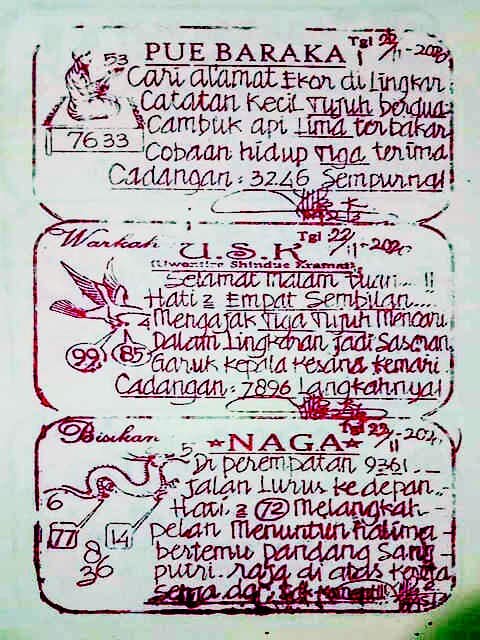 PUE BARAKA Tgl 22/11-2020
53
Cari alamat Ekor di Lingkar
Catatan Kecil Tujuh berdua
7633
Cambuk api Lima terbakar
Cobaan hidup Tiga terima
Cadangan: 3246 Sempurna!
Warkah U.S.K Tgl 22/11-2020
Selamat Malam Tuan...!!
Hati2 Empat Sembilan....
4 Mengajak Tiga Tujuh
99 85
Dalam Lingkaran Jadi Sasaran
Garuk kepala kesana kemari
Cadangan: 7896 Langkahnya!
Bisikan NAGA Tgl 22/11-202
5
Di perempatan 9361
6
Jalan Lurus ke depan
Hati2 72 Melangkah
77 14
pelan Menuntun
8/36
bertemu pandang Sang
putri raja di atas kereta